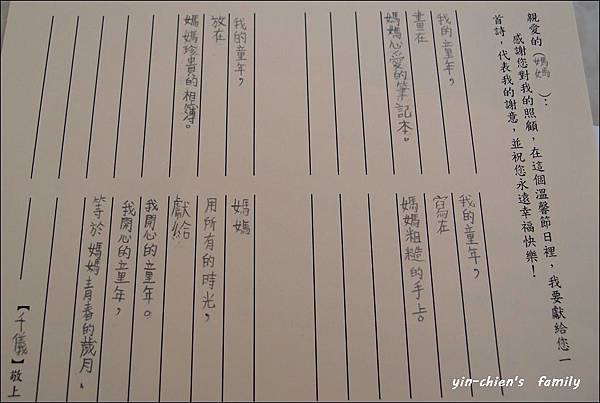 親愛的（媽媽）：
感謝您對我的照顧，在這個溫馨節日裡，我要獻給您一
首詩，代表我的謝意，並祝您永遠幸福快樂！
我的童年，
畫在
媽媽心愛的筆記本。
我的童年，
放在
媽媽珍貴的相簿。
我的童年，
寫在
媽媽粗糙的手上。
媽媽
用所有的時光，
獻給
我開心的童年。
我開心的童年，
等於媽媽青春的歲月。
【千儀】敬上
yin-chien's family